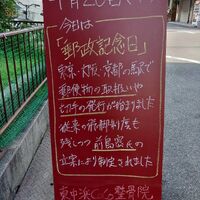 今日は
「郵政記念日」
東京・大阪・京都の駅で
郵便物の取扱いや
切手の発行が始まりました
従来の飛脚制度も
残しつつ前島密氏の
立案により制定されました
整骨院